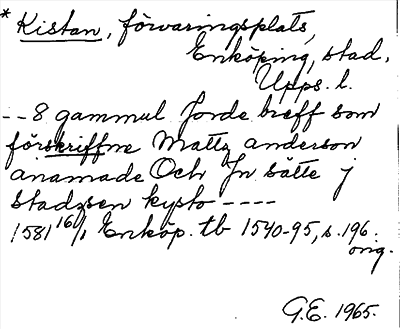 * Kistan, förvaringsplats,
Enköping, stad,
Upps. l.
-- 8 gammul Jorde breff som
förskriffne Mattz anderson
anamade Och Jn sätte j
stadzsen kysto ----
1581 16/1 Enköp. tb 1540-95, s. 196.
orig.
G.E. 1965.